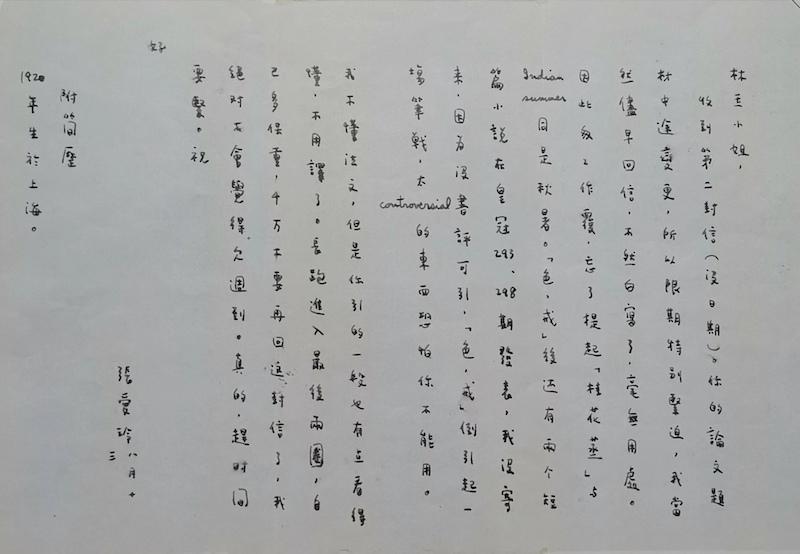 林圭小姐，
收到第二封信（没日期）。你的論文題
材中途變更，所以限期特别緊迫，我當
然儘早回信，不然白寫了，毫無用處。
因此匆匆作覆，忘了提起「桂花蒸」与
Indian summer 同是秋暑。「色，戒」後还有兩个短
篇小說在皇冠293、298期發表，我没寄
来，因為没書評可引，「色，戒」倒引起一
場筆戰，太controversial的東西恐怕你不能用。
我不懂法文，但是你引的一段也有点看得
懂，不用譯了。長跑進入最後兩圈，自
己多保重，千万不要再回這封信了，我
絕对不會覺得欠週到。真的，趕时间
要緊。祝
好
張愛玲 八月十三
附简歷
1920年生於上海。